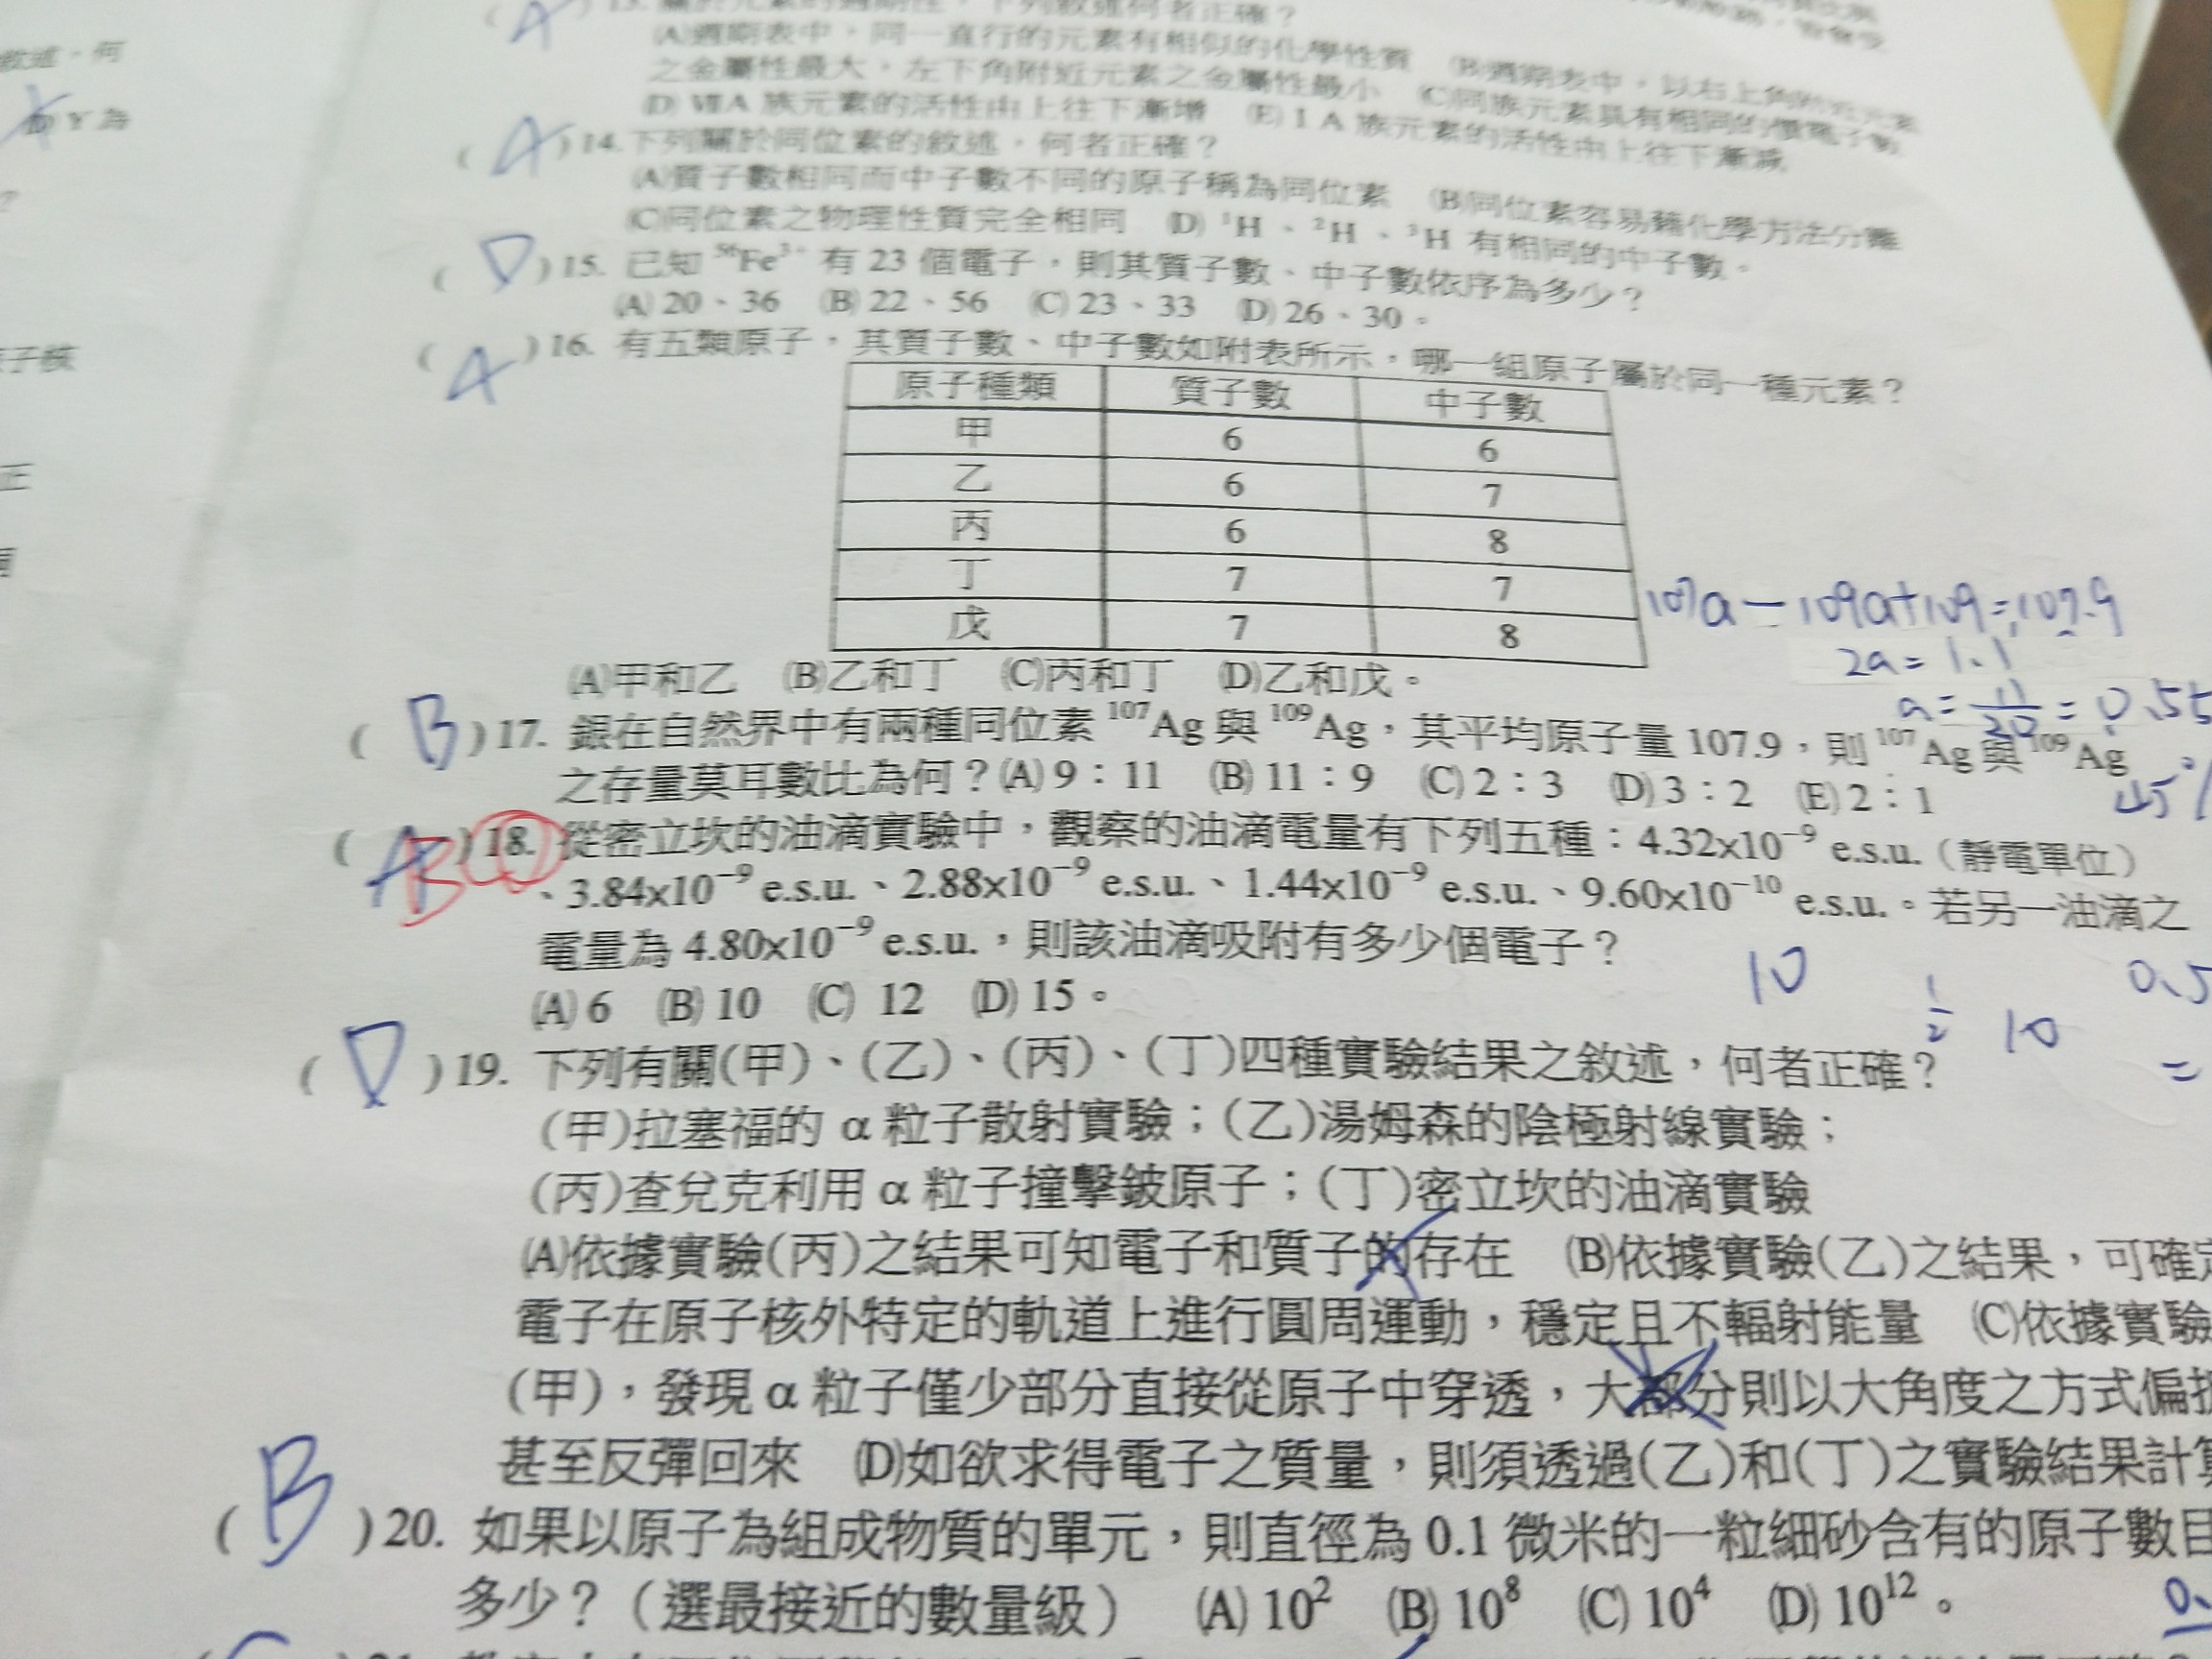 敘述，何
Y 為
?
子核
正
( A ) 13. 關於元素的週期性，下列敘述何者正確？
(A)週期表中，同一直行的元素有相似的化學性質 (B)週期表中，以右上角附近元素
之金屬性最大，左下角附近元素之金屬性最小 (C)同族元素具有相同的價電子數
(D) ⅦA 族元素的活性由上往下漸增 (E) I A 族元素的活性由上往下漸減
( A ) 14.下列關於同位素的敘述，何者正確？
(A)質子數相同而中子數不同的原子稱為同位素 (B)同位素容易藉化學方法分離
(C)同位素之物理性質完全相同 (D) ¹H 、 ²H 、 ³H 有相同的中子數。
( D ) 15. 已知 ⁵⁶Fe³⁺ 有 23 個電子，則其質子數、中子數依序為多少？
(A) 20、36 (B) 22、56 (C) 23、33 (D) 26、30。
( A ) 16. 有五類原子，其質子數、中子數如附表所示，哪一組原子屬於同一種元素？
原子種類 質子數 中子數
甲 6 6
乙 6 7
丙 6 8
丁 7 7
戊 7 8
107a－109a+109=107.9
2a=1.1
a=11/20=0.55
(A)甲和乙 (B)乙和丁 (C)丙和丁 (D)乙和戊。
( B ) 17. 銀在自然界中有兩種同位素 ¹⁰⁷Ag 與 ¹⁰⁹Ag，其平均原子量 107.9，則 ¹⁰⁷Ag 與 ¹⁰⁹Ag
之存量莫耳數比為何？(A) 9：11 (B) 11：9 (C) 2：3 (D) 3：2 (E) 2：1
45%
( A B ) 18. 從密立坎的油滴實驗中，觀察的油滴電量有下列五種：4.32x10⁻⁹ e.s.u.（靜電單位）
、3.84x10⁻⁹ e.s.u.、2.88x10⁻⁹ e.s.u.、1.44x10⁻⁹ e.s.u.、9.60x10⁻¹⁰ e.s.u.。若另一油滴之
電量為 4.80x10⁻⁹ e.s.u.，則該油滴吸附有多少個電子？
10 1/2 10 0.5 =
(A) 6 (B) 10 (C) 12 (D) 15。
( D ) 19. 下列有關(甲)、(乙)、(丙)、(丁)四種實驗結果之敘述，何者正確？
(甲)拉塞福的 α 粒子散射實驗；(乙)湯姆森的陰極射線實驗；
(丙)查兌克利用 α 粒子撞擊鈹原子；(丁)密立坎的油滴實驗
(A)依據實驗(丙)之結果可知電子和質子的存在 (B)依據實驗(乙)之結果，可確定
電子在原子核外特定的軌道上進行圓周運動，穩定且不輻射能量 (C)依據實驗
(甲)，發現 α 粒子僅少部分直接從原子中穿透，大部分則以大角度之方式偏折
甚至反彈回來 (D)如欲求得電子之質量，則須透過(乙)和(丁)之實驗結果計算
( B ) 20. 如果以原子為組成物質的單元，則直徑為 0.1 微米的一粒細砂含有的原子數目
多少？（選最接近的數量級） (A) 10² (B) 10⁸ (C) 10⁴ (D) 10¹²。